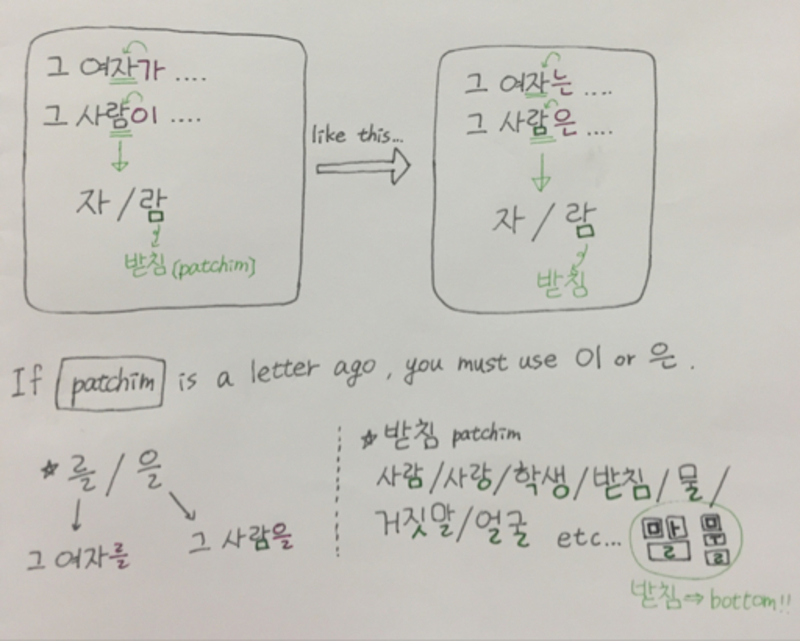 그 여자가 ....
그 사람이 ....
자 / 람
받침 (patchim)
like this...
그 여자는 ....
그 사람은 ....
자 / 람
받침
If patchim is a letter ago, you must use 이 or 은.
* 를 / 을
그 여자를
그 사람을
* 받침 patchim
사람/사랑/학생/받침/물/
거짓말/얼굴 etc...
말 물
받침 ⇒ bottom!!